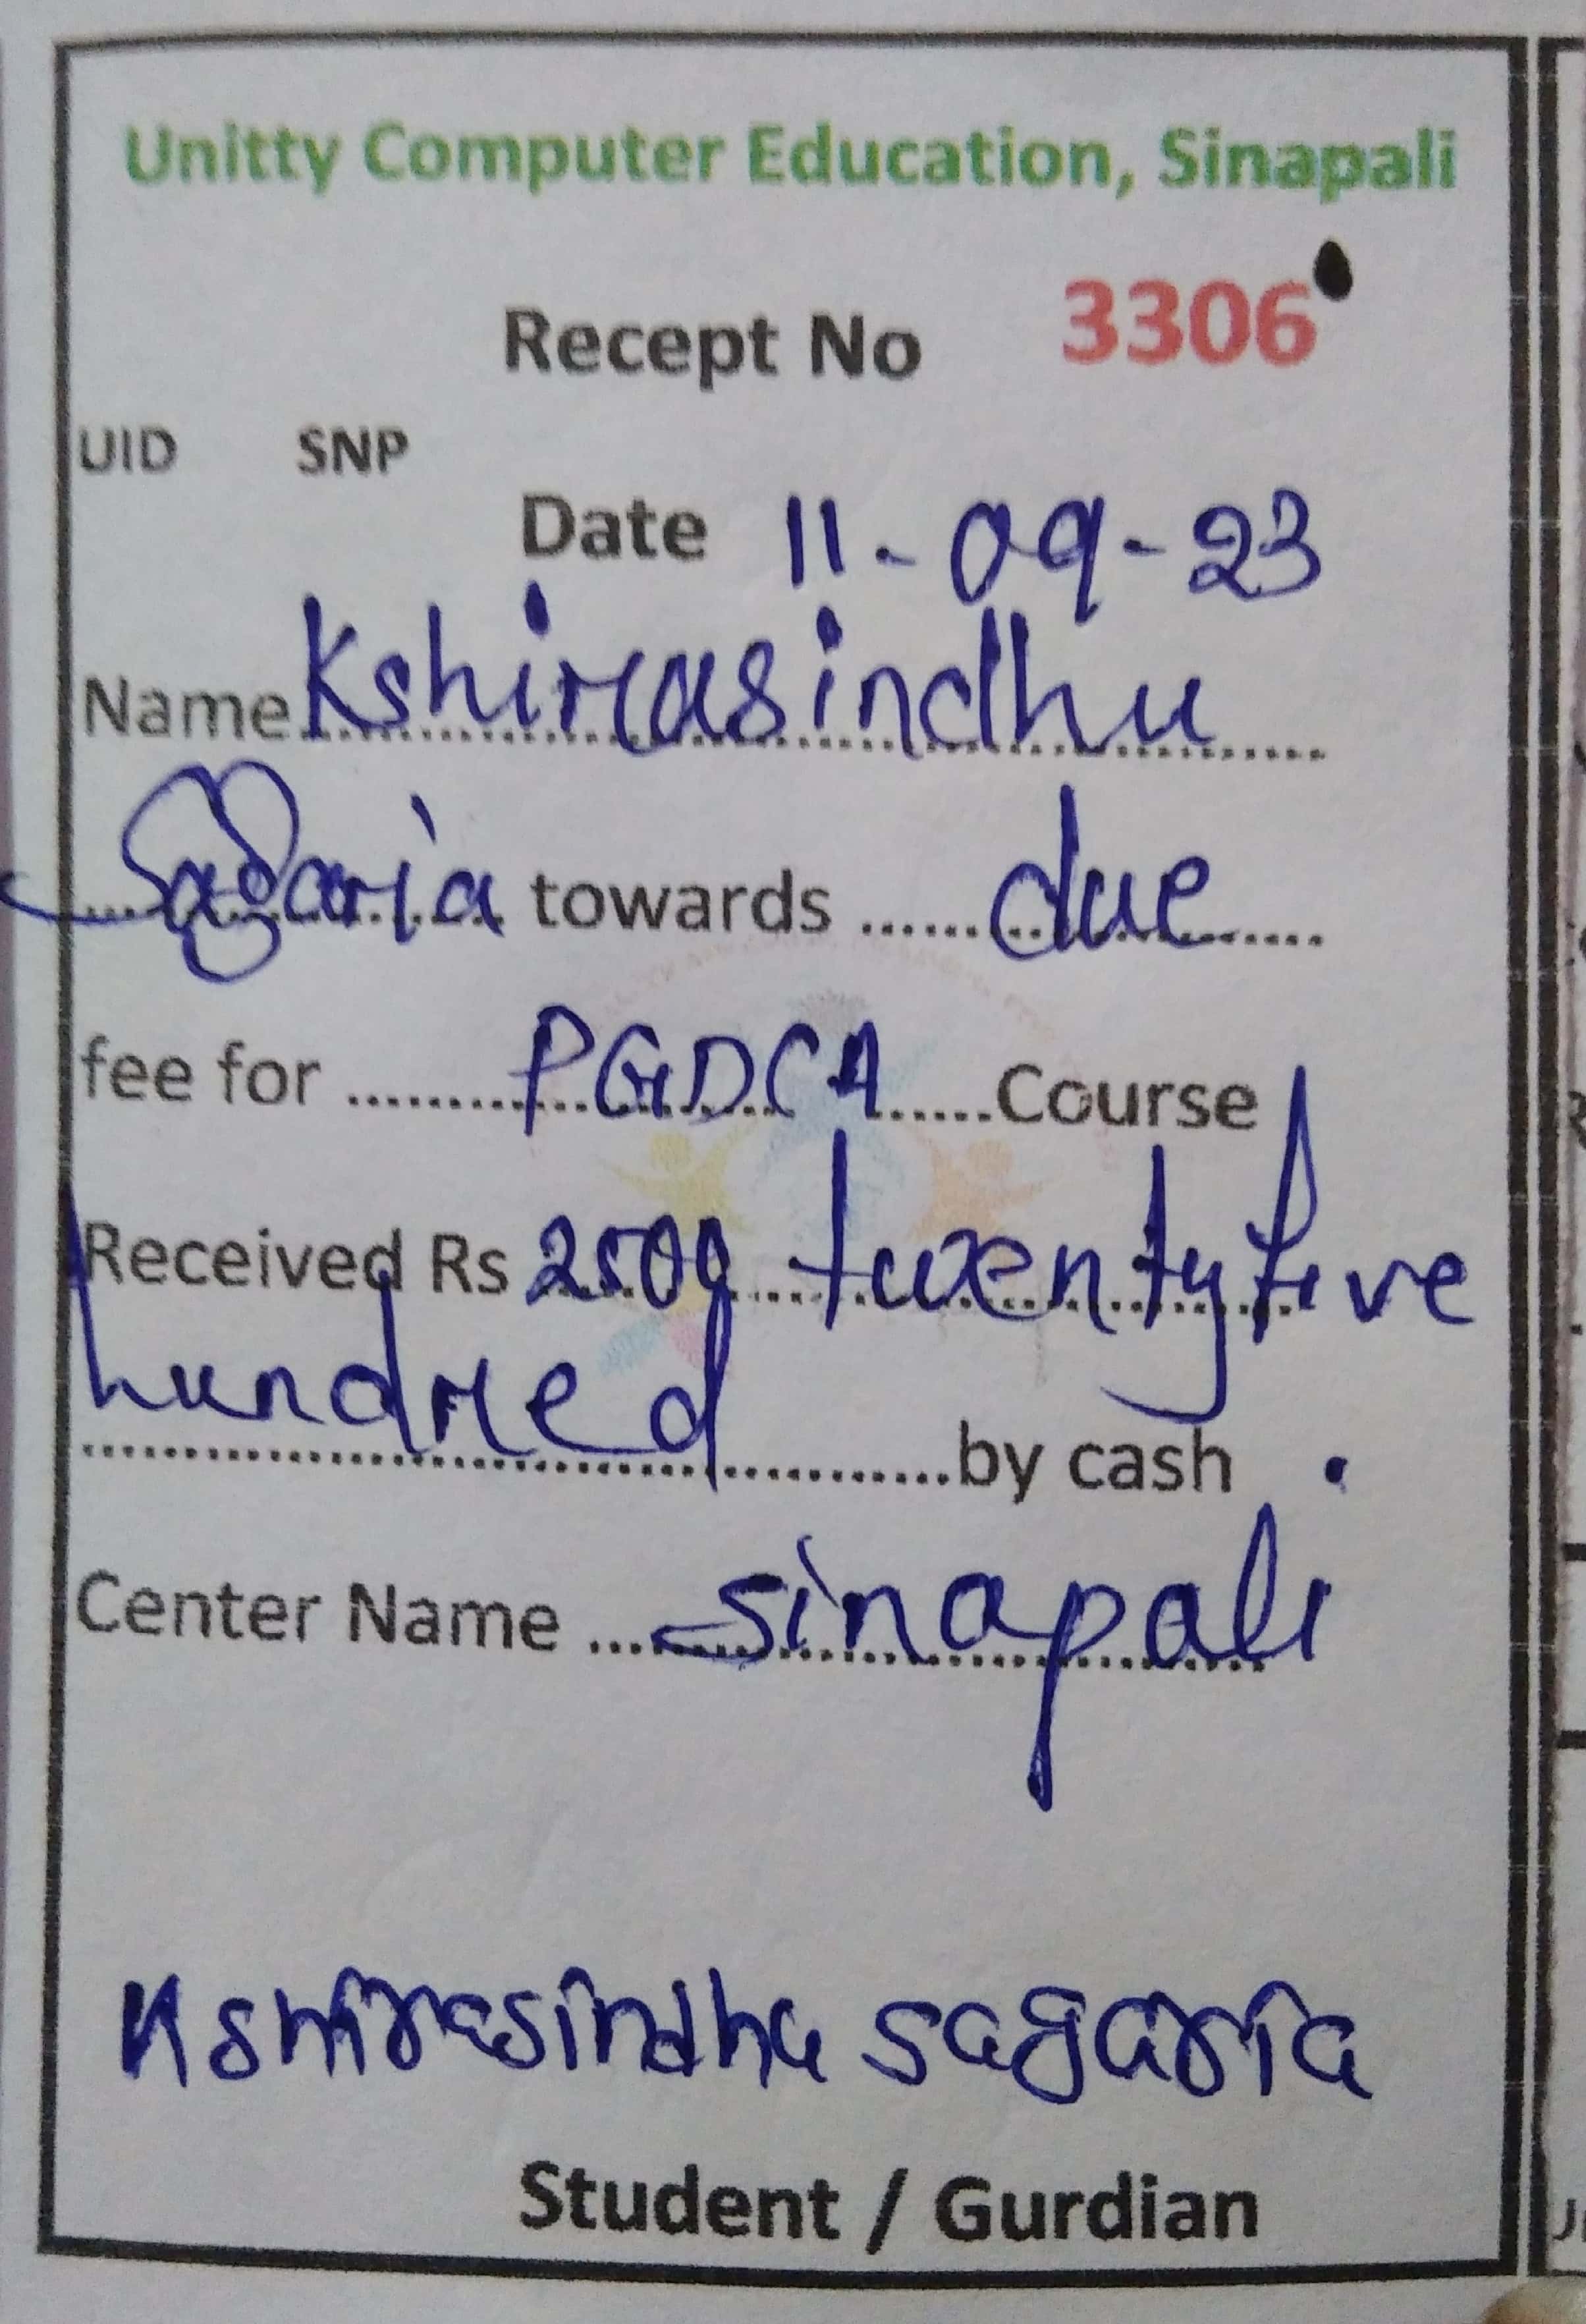 Unitty Computer Education, Sinapali
Recept No 3306
UID SNP
Date 11-09-23
Name Kshirasindhu
Sagaria towards ...... due
fee for ........ PGDCA ......Course
Received Rs 2500 twentyfive
hundred
....................................by cash .
Center Name .... Sinapali
Kshirasindhu sagaria
Student / Gurdian